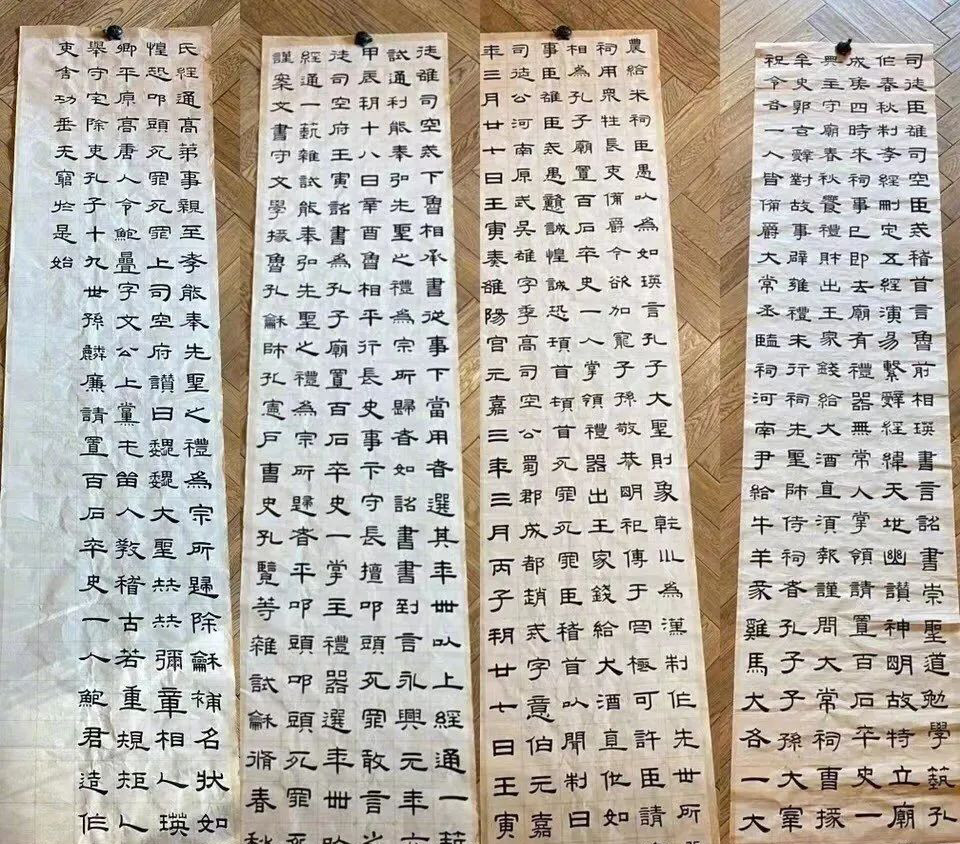 司徒臣雄司空臣戒稽首言魯前相瑛書言詔書崇聖道勉學藝孔
作春秋制孝經刪定五經演易繫辭經緯天地幽讚神明故特立廟
成侯四時來祠事已即去廟有禮器無常人掌領請置百石卒史一
典主守廟春秋饗禮財出王家錢給大酒直須報謹問大常祠曹掾
牟史郭玄辭對故事辟雍禮未行祠先聖師侍祠者孔子子孫大宰
祝令各一人皆備爵大常丞監祠河南尹給牛羊豕雞馬大各一大
農給米祠臣愚以為如瑛言孔子大聖則象乾坤為漢制作先世所
祠用眾牲長吏備爵今欲加寵子孫敬恭明祀傳于罔極可許臣請
相為孔子廟置百石卒史一人掌領禮器出王家錢給大酒直他如
事臣雄臣戒愚戇誠惶誠恐頓首頓首死罪死罪臣稽首以聞制曰
司徒公河南原武吳雄字季高司空公蜀郡成都趙戒字意伯元嘉
年三月廿十日壬寅奏雒陽宮元嘉三年三月丙子朔廿七日壬寅
徒雄司空戒下魯相承書從事下當用者選其年卌以上經通一藝
試通利能奉弘先聖之禮為宗所歸者如詔書書到言永興元年六
甲辰朔十八日辛酉魯相平行長史事卞守長擅叩頭死罪敢言之
徒司空府壬寅詔書為孔子廟置百石卒史一掌主禮器選年卌以
經通一藝雜試能奉弘先聖之禮為宗所歸者平叩頭叩頭死罪
謹案文書守文學掾魯孔龢師孔憲戶曹史孔覽等雜試龢脩春秋
氏經通高第事親至孝能奉先聖之禮為宗所歸除龢補名狀如
惶恐叩頭死罪死罪上司空府讚曰巍巍大聖赫赫彌章相人瑛
卿平原高唐人令鮑疊字文公上黨屯留人教稽古若重規矩人
舉守宅除吏孔子十九世孫麟廉請置百石卒史一人鮑君造作
吏舍功垂无窮於是始